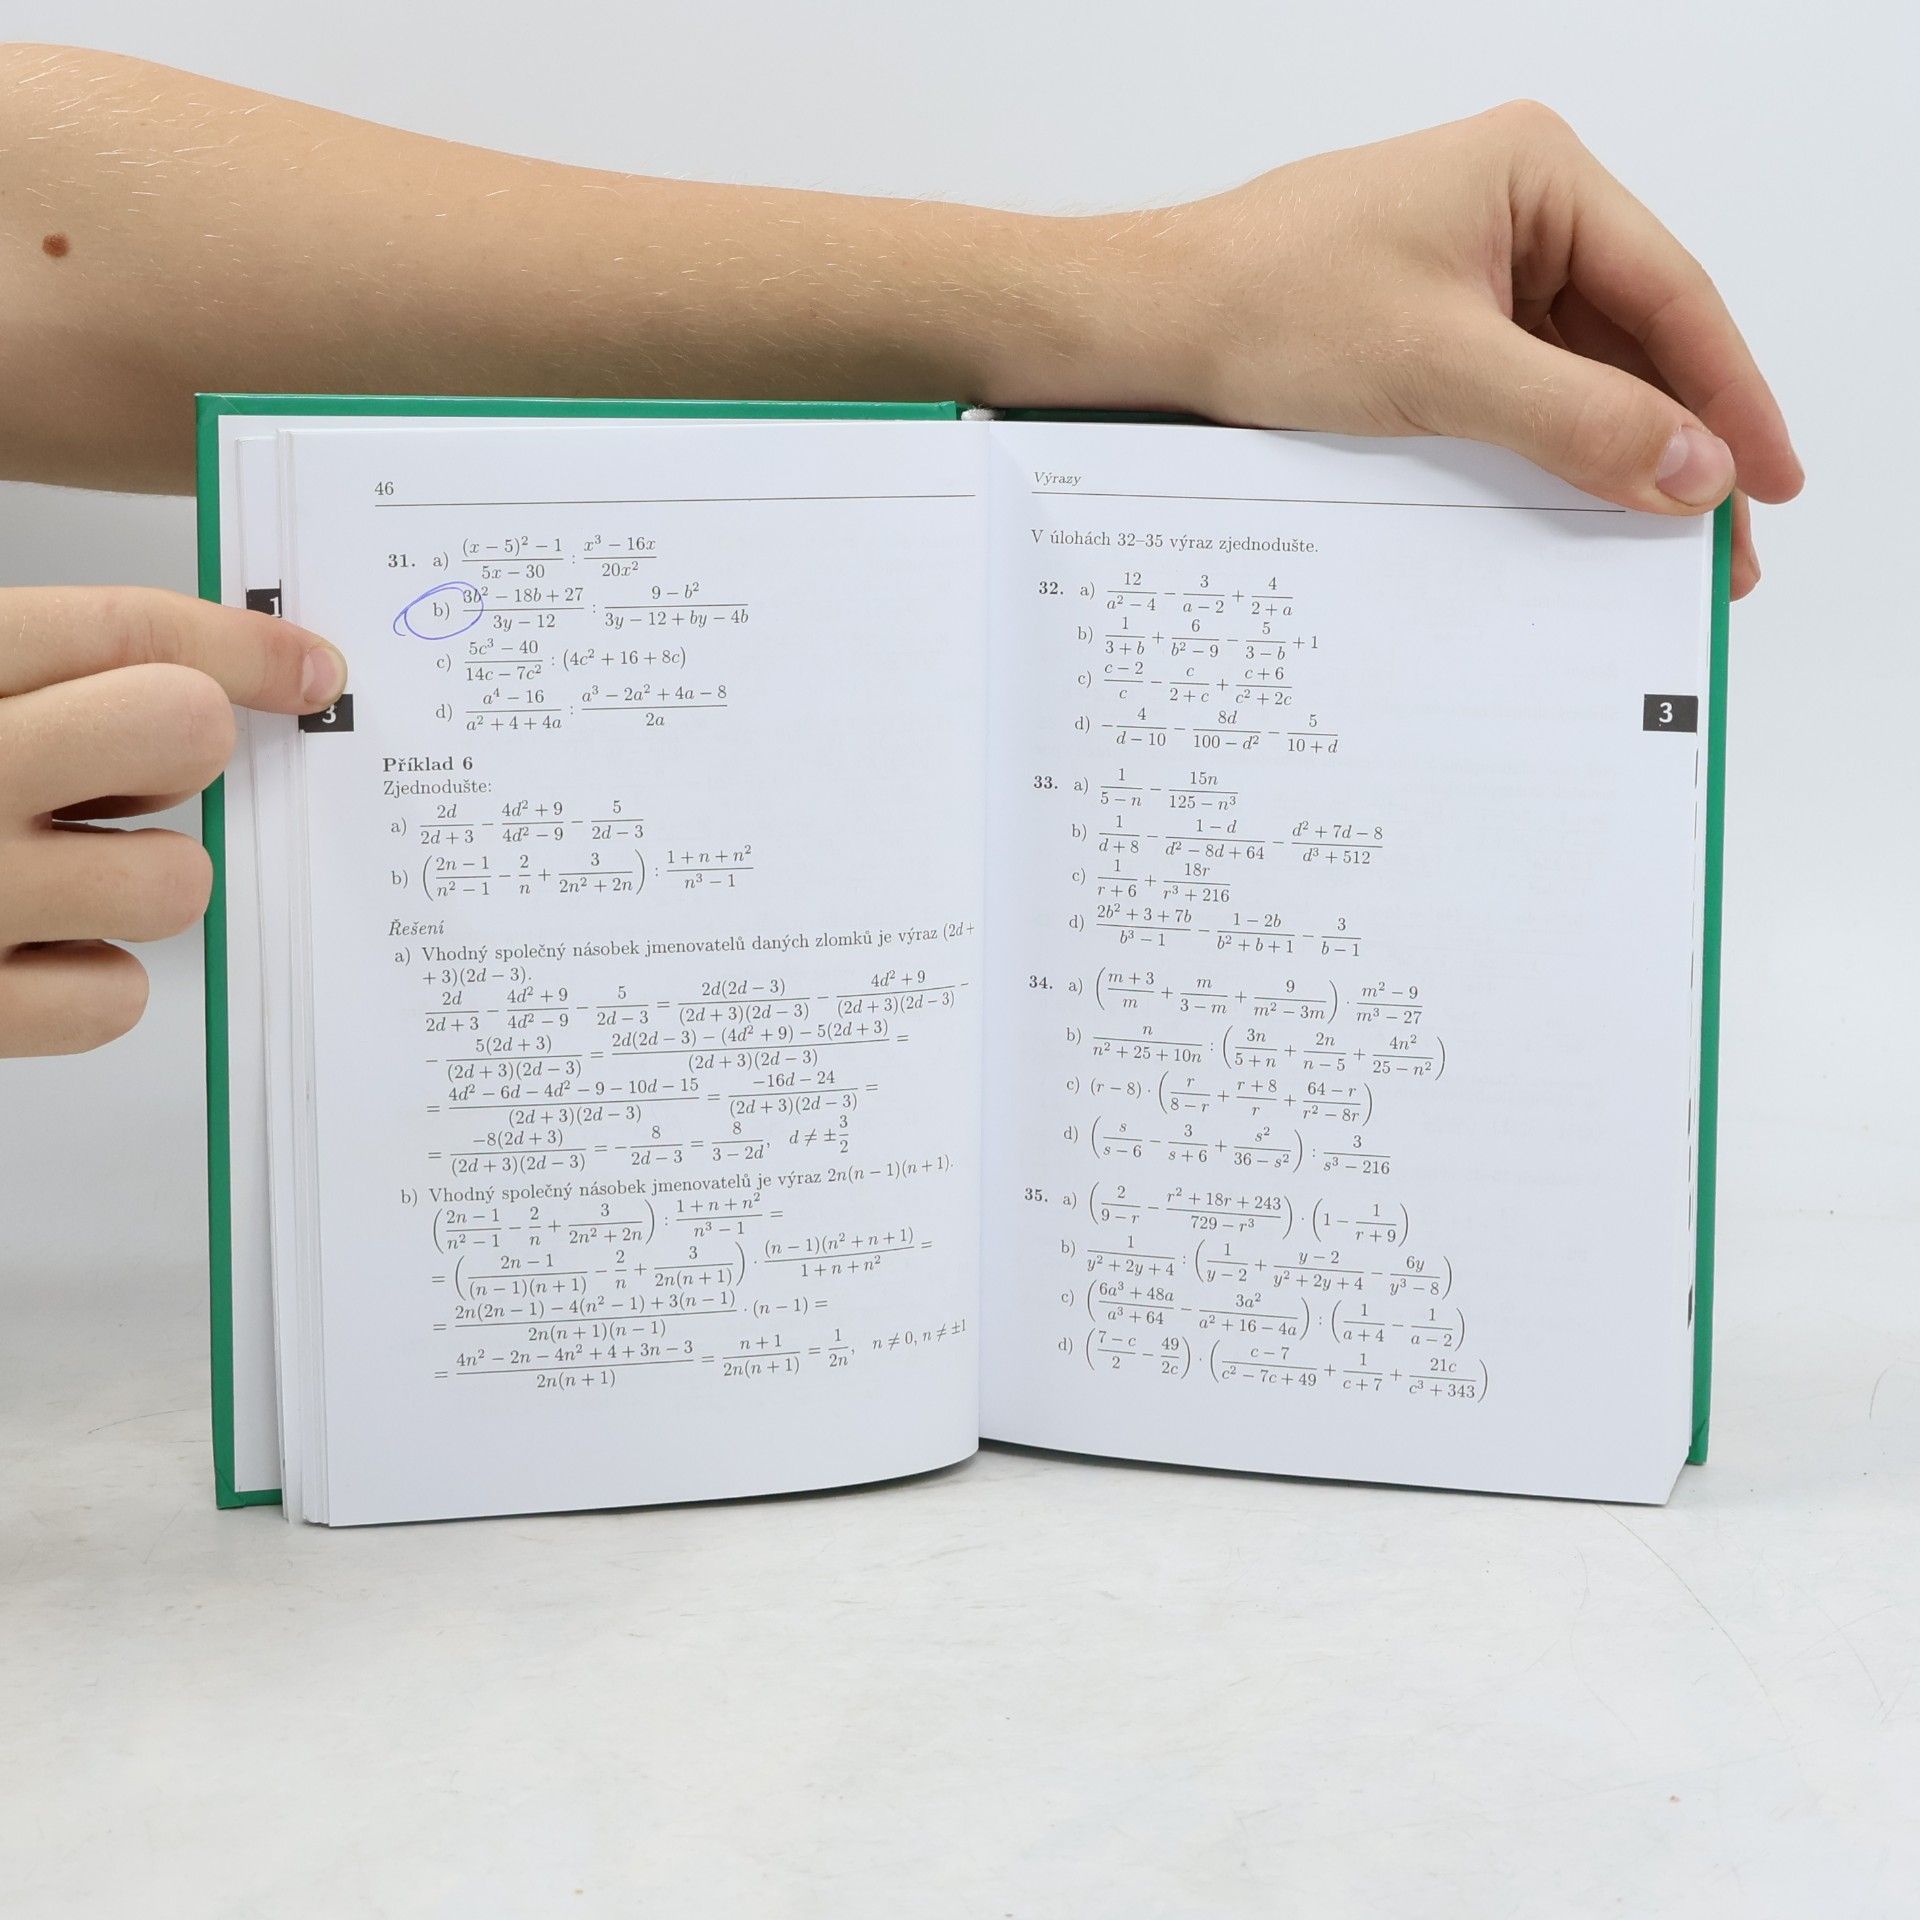 46
31. a) \frac{(x − 5)² − 1}{5x − 30} : \frac{x³ − 16x}{20x²}
b) \frac{3b² − 18b + 27}{3y − 12} : \frac{9 − b²}{3y − 12 + by − 4b}
c) \frac{5c³ − 40}{14c − 7c²} : (4c² + 16 + 8c)
d) \frac{a⁴ − 16}{a² + 4 + 4a} : \frac{a³ − 2a² + 4a − 8}{2a}
Příklad 6
Zjednodušte:
a) \frac{2d}{2d + 3} − \frac{4d² + 9}{4d² − 9} − \frac{5}{2d − 3}
b) (\frac{2n − 1}{n² − 1} − \frac{2}{n} + \frac{3}{2n² + 2n}) : \frac{1 + n + n²}{n³ − 1}
Řešení
a) Vhodný společný násobek jmenovatelů daných zlomků je výraz (2d+
+ 3)(2d − 3).
\frac{2d}{2d + 3} − \frac{4d² + 9}{4d² − 9} − \frac{5}{2d − 3} = \frac{2d(2d − 3)}{(2d + 3)(2d − 3)} − \frac{4d² + 9}{(2d + 3)(2d − 3)} −
− \frac{5(2d + 3)}{(2d + 3)(2d − 3)} = \frac{2d(2d − 3) − (4d² + 9) − 5(2d + 3)}{(2d + 3)(2d − 3)} =
= \frac{4d² − 6d − 4d² − 9 − 10d − 15}{(2d + 3)(2d − 3)} = \frac{−16d − 24}{(2d + 3)(2d − 3)} =
= \frac{−8(2d + 3)}{(2d + 3)(2d − 3)} = −\frac{8}{2d − 3} = \frac{8}{3 − 2d}, d ≠ ±\frac{3}{2}
b) Vhodný společný násobek jmenovatelů je výraz 2n(n − 1)(n + 1).
(\frac{2n − 1}{n² − 1} − \frac{2}{n} + \frac{3}{2n² + 2n}) : \frac{1 + n + n²}{n³ − 1} =
= (\frac{2n − 1}{(n − 1)(n + 1)} − \frac{2}{n} + \frac{3}{2n(n + 1)}) · \frac{(n − 1)(n² + n + 1)}{1 + n + n²} =
= \frac{2n(2n − 1) − 4(n² − 1) + 3(n − 1)}{2n(n + 1)(n − 1)} · (n − 1) =
= \frac{4n² − 2n − 4n² + 4 + 3n − 3}{2n(n + 1)} = \frac{n + 1}{2n(n + 1)} = \frac{1}{2n}, n ≠ 0, n ≠ ±1
1
3
Výrazy
V úlohách 32–35 výraz zjednodušte.
32. a) \frac{12}{a² − 4} − \frac{3}{a − 2} + \frac{4}{2 + a}
b) \frac{1}{3 + b} + \frac{6}{b² − 9} − \frac{5}{3 − b} + 1
c) \frac{c − 2}{c} − \frac{c}{2 + c} + \frac{c + 6}{c² + 2c}
d) −\frac{4}{d − 10} − \frac{8d}{100 − d²} − \frac{5}{10 + d}
33. a) \frac{1}{5 − n} − \frac{15n}{125 − n³}
b) \frac{1}{d + 8} − \frac{1 − d}{d² − 8d + 64} − \frac{d² + 7d − 8}{d³ + 512}
c) \frac{1}{r + 6} + \frac{18r}{r³ + 216}
d) \frac{2b² + 3 + 7b}{b³ − 1} − \frac{1 − 2b}{b² + b + 1} − \frac{3}{b − 1}
34. a) (\frac{m + 3}{m} + \frac{m}{3 − m} + \frac{9}{m² − 3m}) · \frac{m² − 9}{m³ − 27}
b) \frac{n}{n² + 25 + 10n} : (\frac{3n}{5 + n} + \frac{2n}{n − 5} + \frac{4n²}{25 − n²})
c) (r − 8) · (\frac{r}{8 − r} + \frac{r + 8}{r} + \frac{64 − r}{r² − 8r})
d) (\frac{s}{s − 6} − \frac{3}{s + 6} + \frac{s²}{36 − s²}) : \frac{3}{s³ − 216}
35. a) (\frac{2}{9 − r} − \frac{r² + 18r + 243}{729 − r³}) · (1 − \frac{1}{r + 9})
b) \frac{1}{y² + 2y + 4} : (\frac{1}{y − 2} + \frac{y − 2}{y² + 2y + 4} − \frac{6y}{y³ − 8})
c) (\frac{6a³ + 48a}{a³ + 64} − \frac{3a²}{a² + 16 − 4a}) : (\frac{1}{a + 4} − \frac{1}{a − 2})
d) (\frac{7 − c}{2} − \frac{49}{2c}) · (\frac{c − 7}{c² − 7c + 49} + \frac{1}{c + 7} + \frac{21c}{c³ + 343})
3